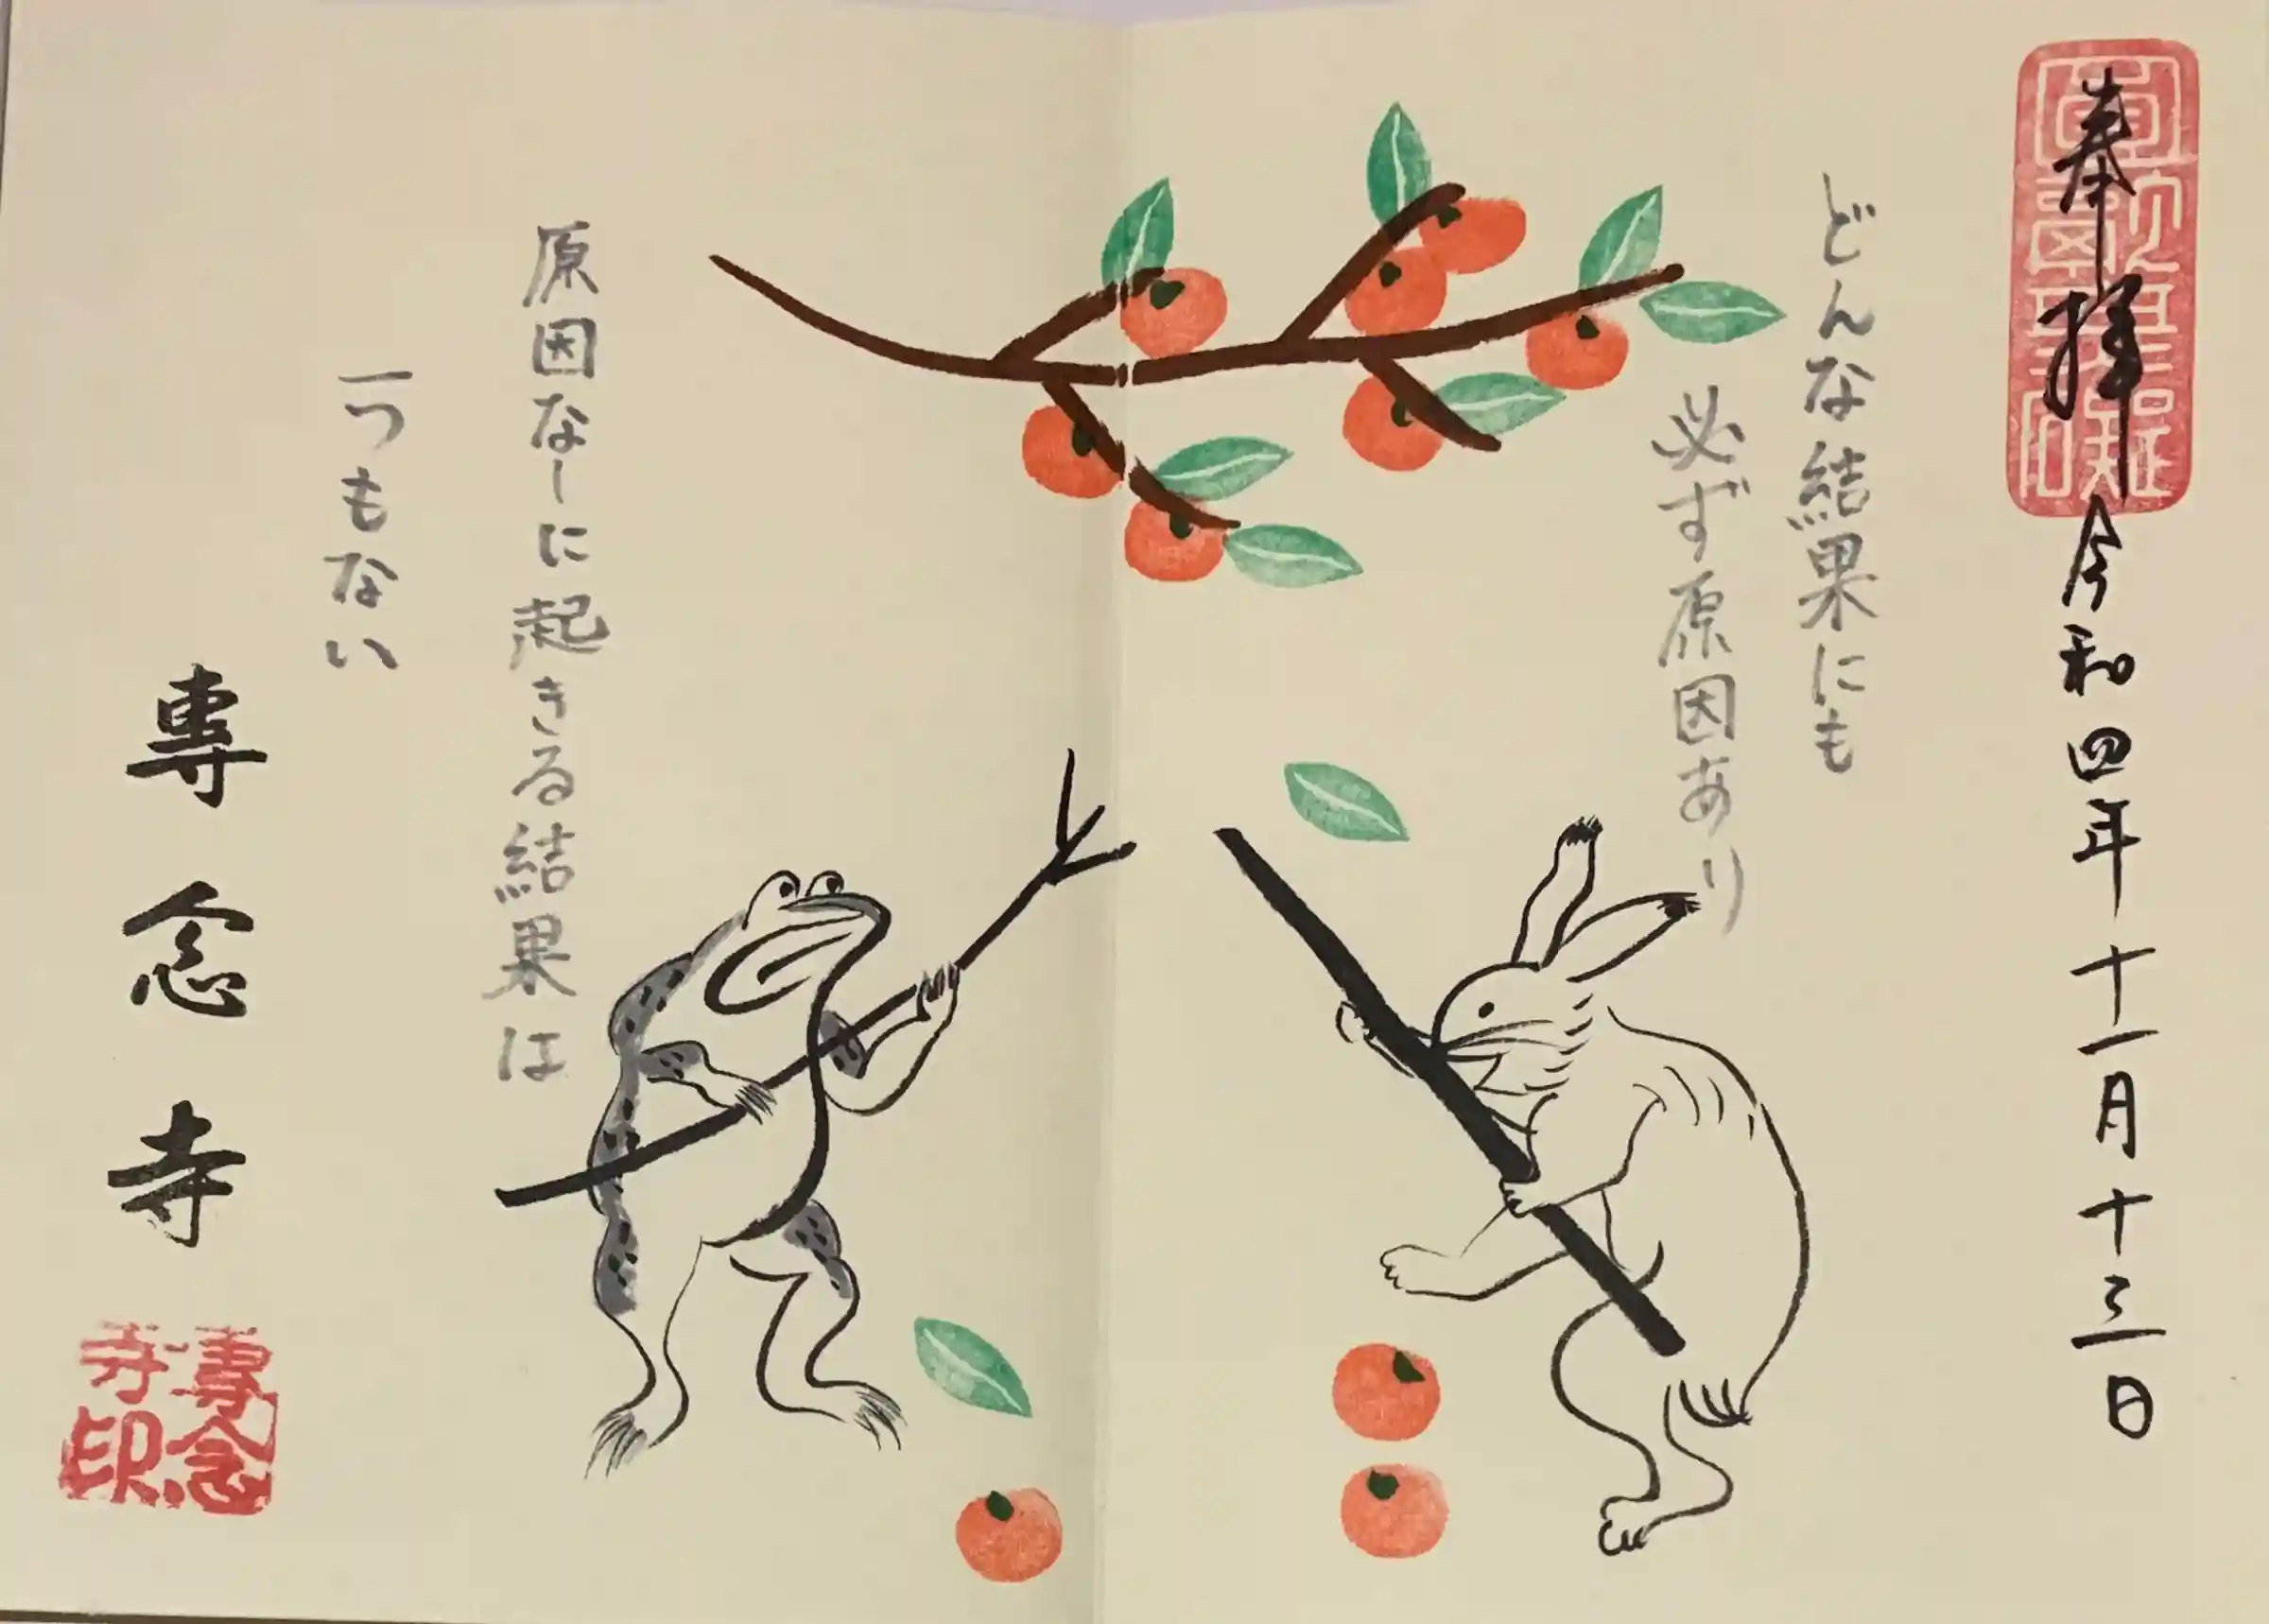 奉拝 令和四年十一月十三日
どんな結果にも
必ず原因あり
原因なしに起きる結果は
一つもない
專念寺
專念
寺印